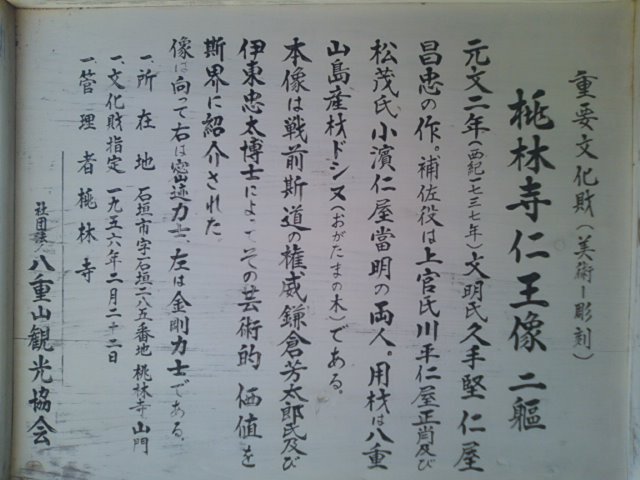 重要文化財(美術ー彫刻)
桃林寺仁王像 二軀
元文二年(西紀一七三七年)文明氏久手堅仁屋
昌忠の作。補佐役は上官氏川平仁屋正尚及び
松茂氏小濱仁屋當明の両人。用材は八重
山島産材ドシヌ(おがたまの木)である。
本像は戦前斯道の権威鎌倉芳太郎氏及び
伊東忠太博士によってその芸術的価値を
斯界に紹介された。
像は向って右は密迹力士、左は金剛力士である。
一、所在地 石垣市字石垣二八五番地 桃林寺山門
一、文化財指定 一九五六年二月二十二日
一、管理者 桃林寺
社団法人 八重山観光協会